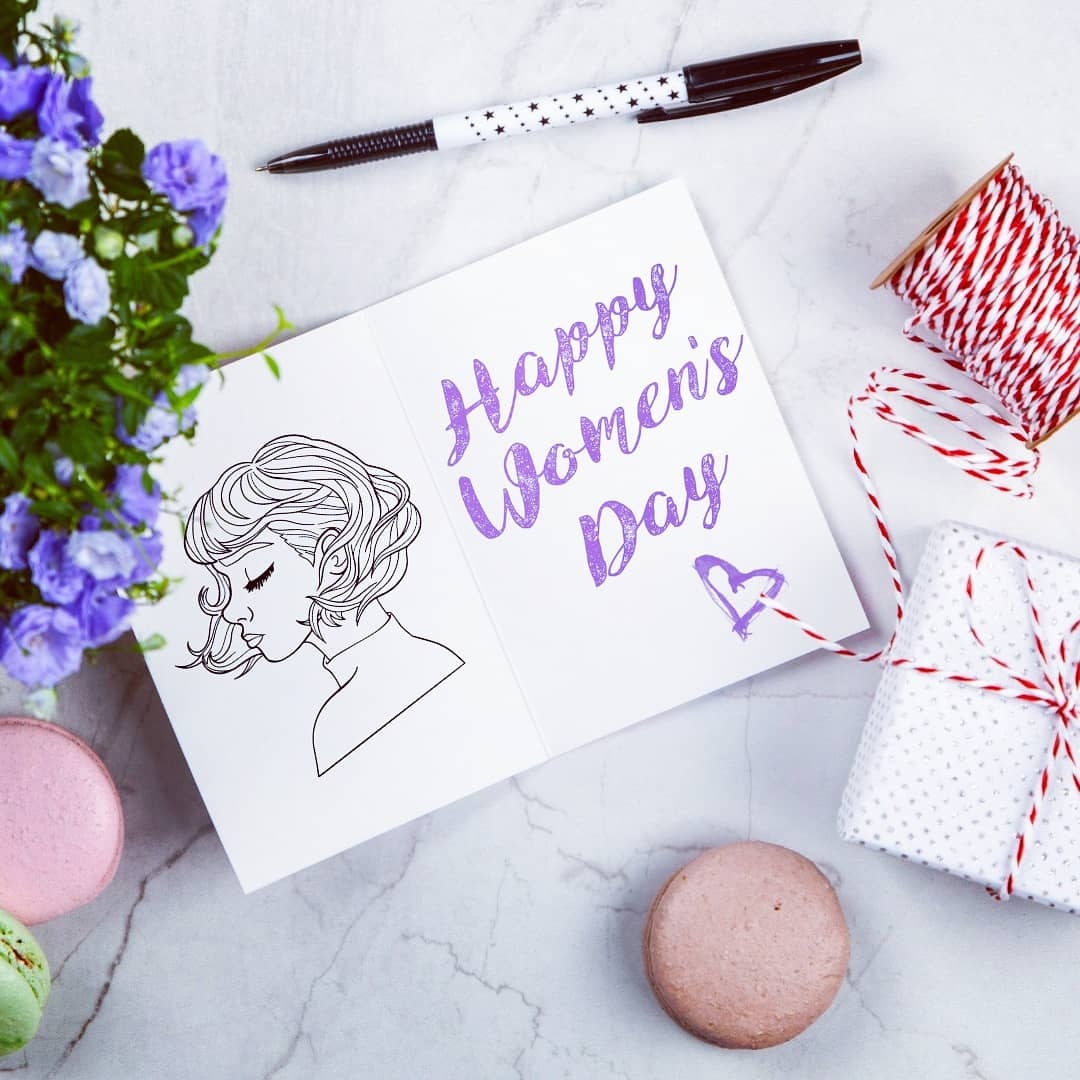 Happy
Women's
Day